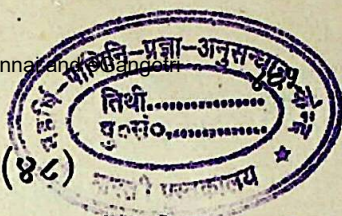 nnai and eGangotri
महर्षि-पाणिनि-प्रज्ञा-अनुसन्धान-केन्द्र
तिथी
पु०सं०
(४८)
पुस्तकालय